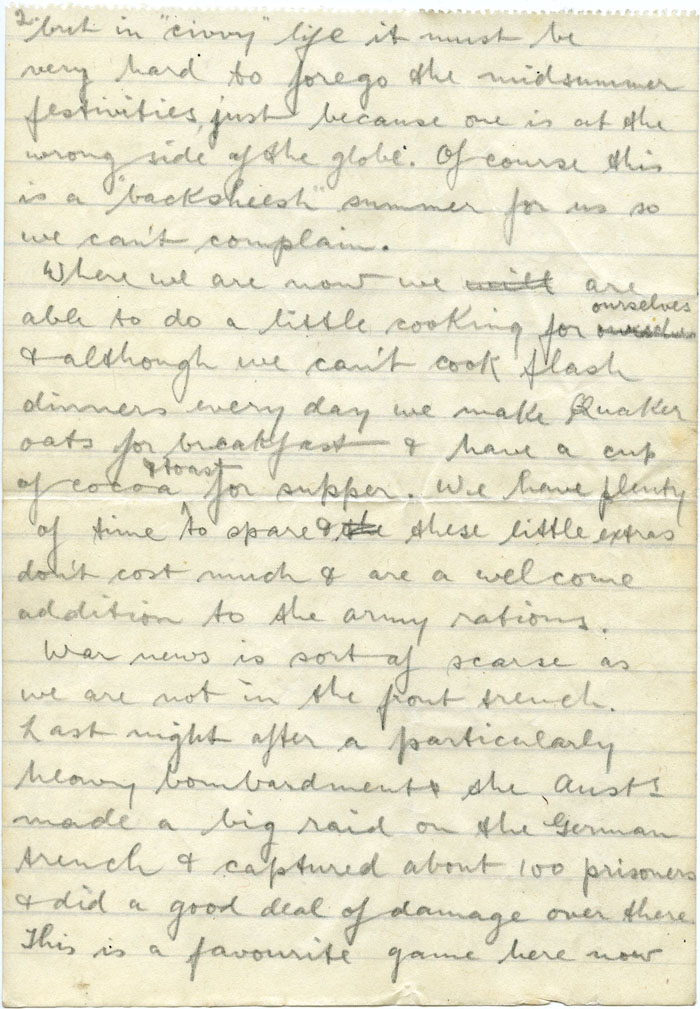 2.
but in "civvy" life it must be
very hard to forego the midsummer
festivities, just because one is at the
wrong side of the globe. Of course this
is a "backsheesh" summer for us so
we can't complain.
Where we are now we will are
able to do a little cooking for ourselves
& although we can't cook flash
dinners every day we make Quaker
oats for breakfast & have a cup
of cocoa & toast for supper. We have plenty
of time to spare & the these little extras
don't cost much & are a welcome
addition to the army rations.
War news is sort of scarse as
we are not in the front trench.
Last night after a particularly
heavy bombardment the Austs
made a big raid on the German
trench & captured about 100 prisoners
& did a good deal of damage over there
This is a favourite game here now